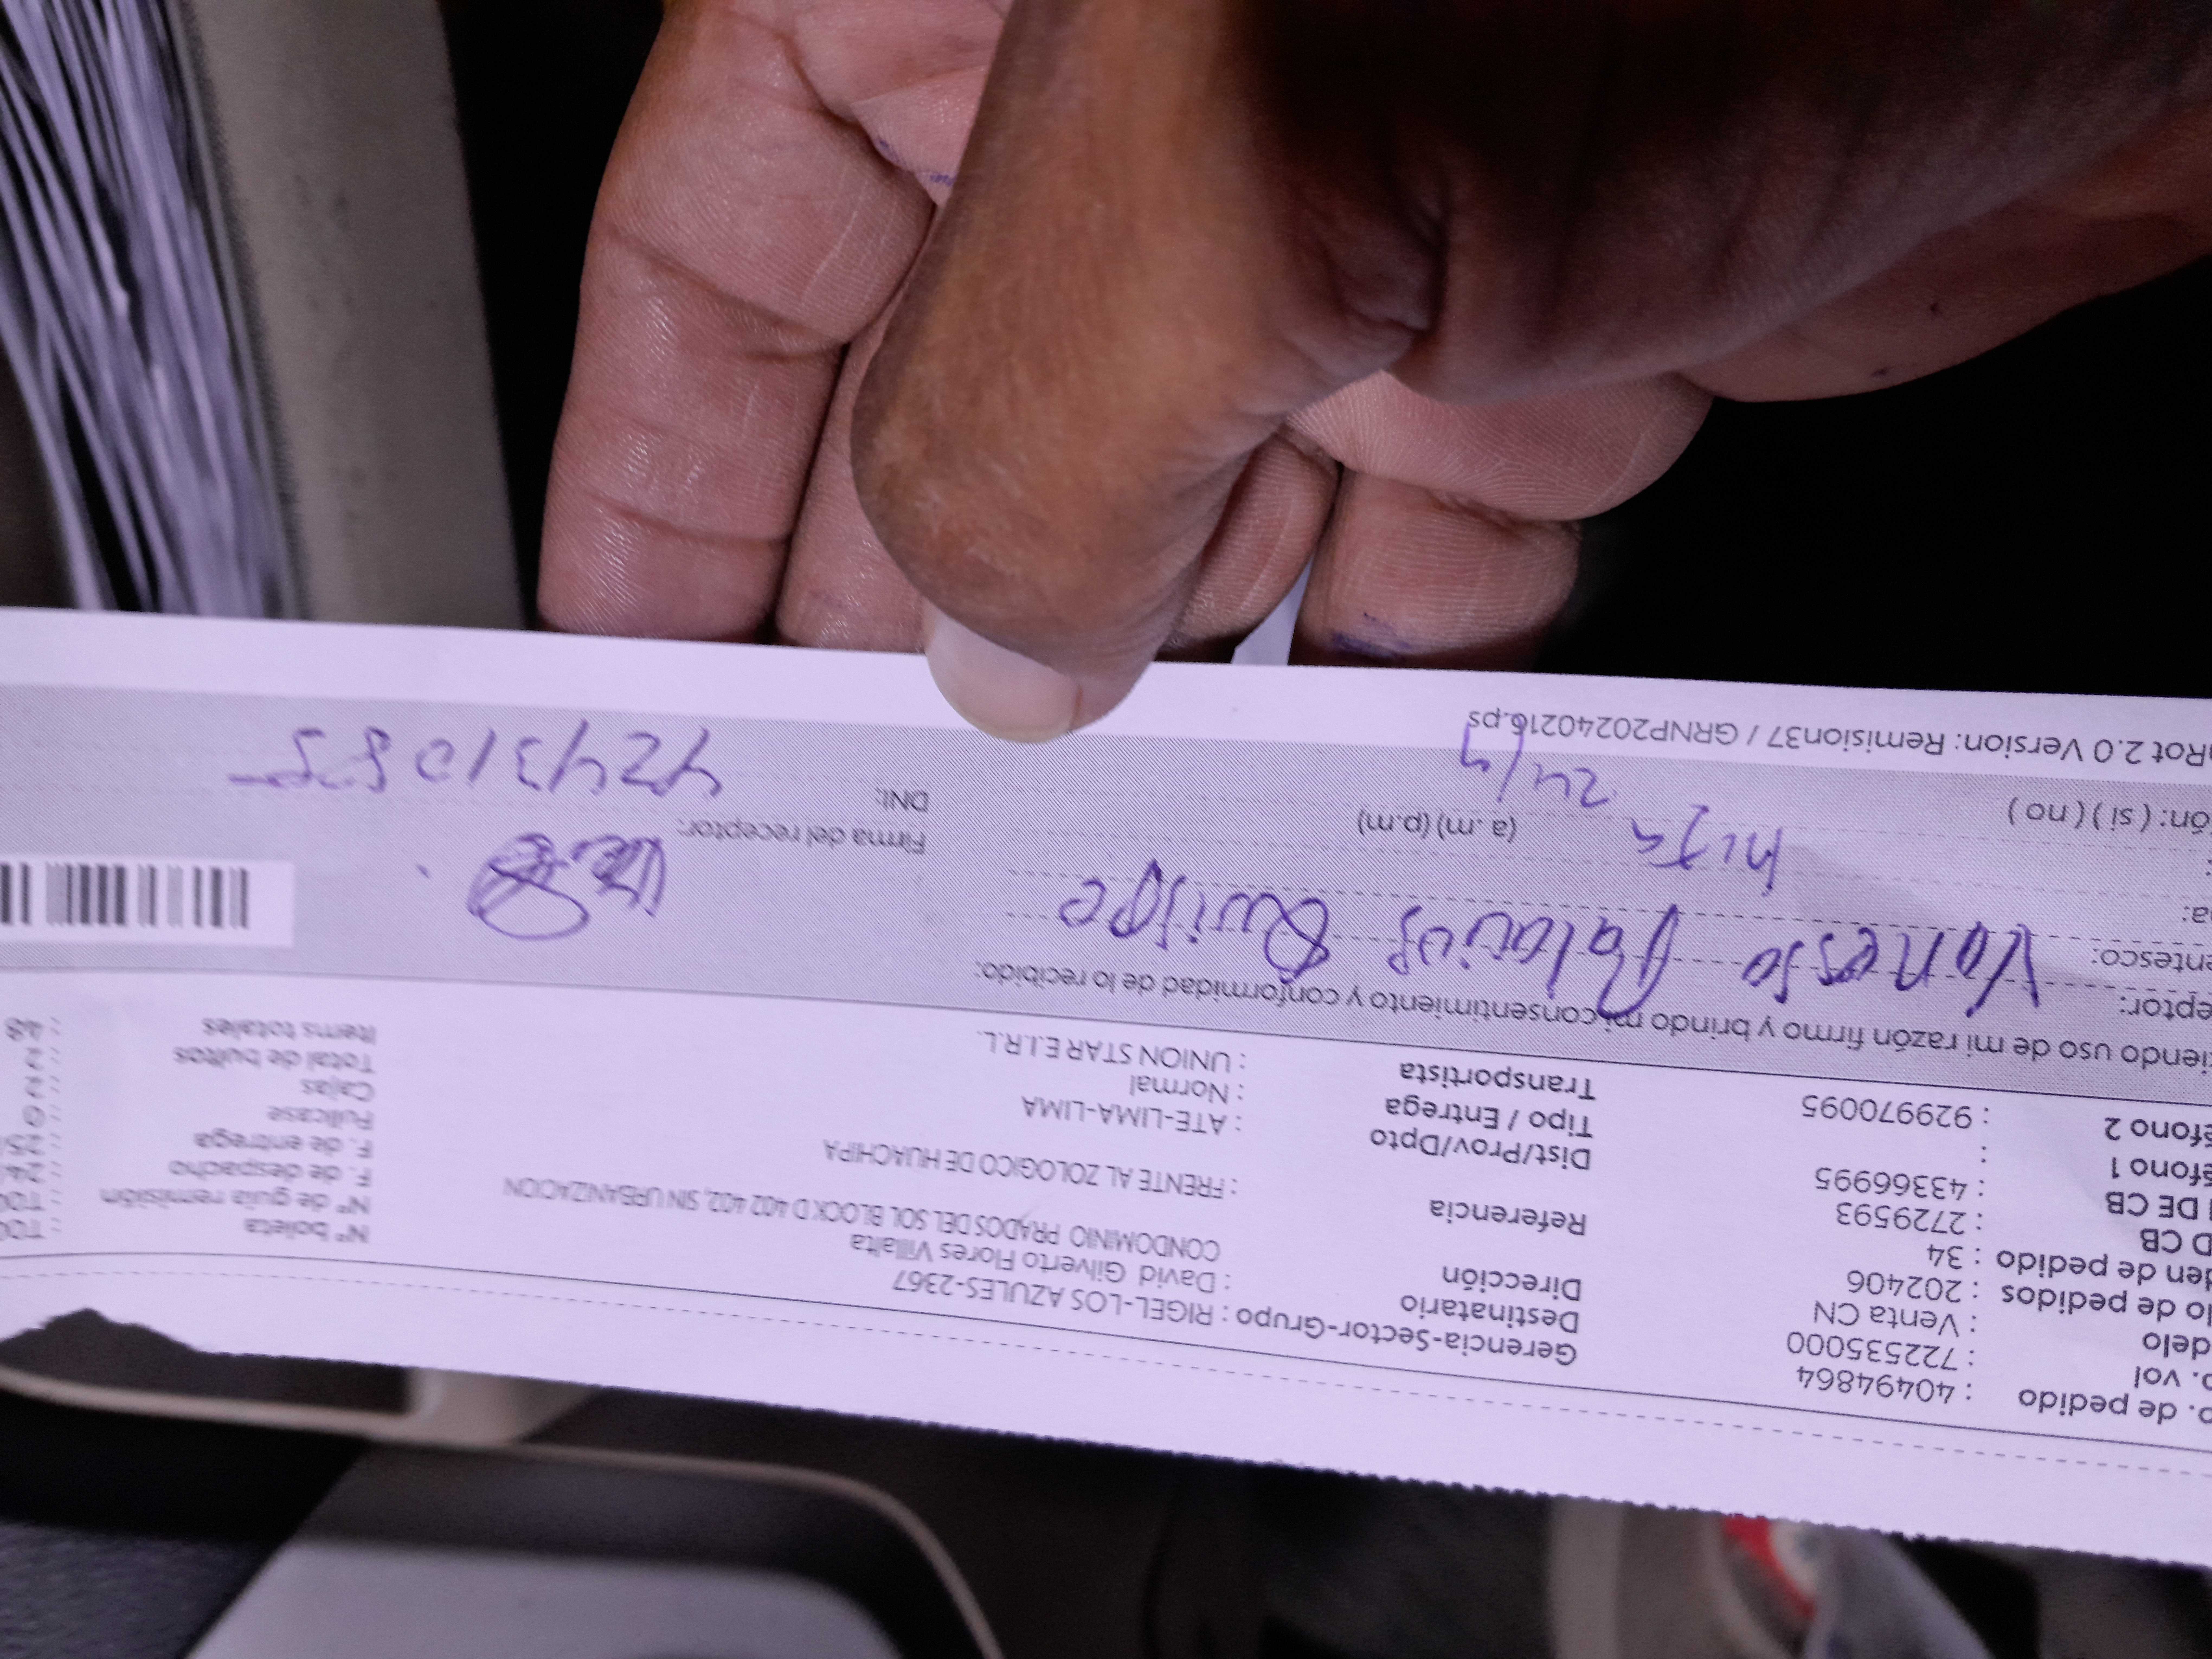 o. de pedido : 40494864
o. vol : 722535000
delo : Venta CN
lo de pedidos : 202406
den de pedido : 34
D CB : 2729593
DE CB : 43366995
éfono 1 :
éfono 2 : 929970095
Gerencia-Sector-Grupo : RIGEL-LOS AZULES-2367
Destinatario : David Gilverto Flores Villalta
Dirección CONDOMINIO PRADOS DEL SOL BLOCK D 402 402, SIN URBANIZACION
Referencia : FRENTE AL ZOLOGICO DE HUACHIPA
Dist/Prov/Dpto : ATE-LIMA-LIMA
Tipo / Entrega : Normal
Transportista : UNION STAR E.I.R.L.
N° boleta : T00
N° de guia remisión : T00
F. de despacho : 24/
F. de entrega : 25/
Fullcase : 0
Cajas : 2
Total de bultos : 2
Items totales : 48
iendo uso de mi razón firmo y brindo mi consentimiento y conformidad de lo recibido:
eptor: Vanessa Palacios Quispe
entesco:
a: hija
(a. m) (p.m)
ón: ( si ) ( no )
Firma del receptor:
DNI: 42431085
Rot 2.0 Version: Remision37 / GRNP20240216.ps